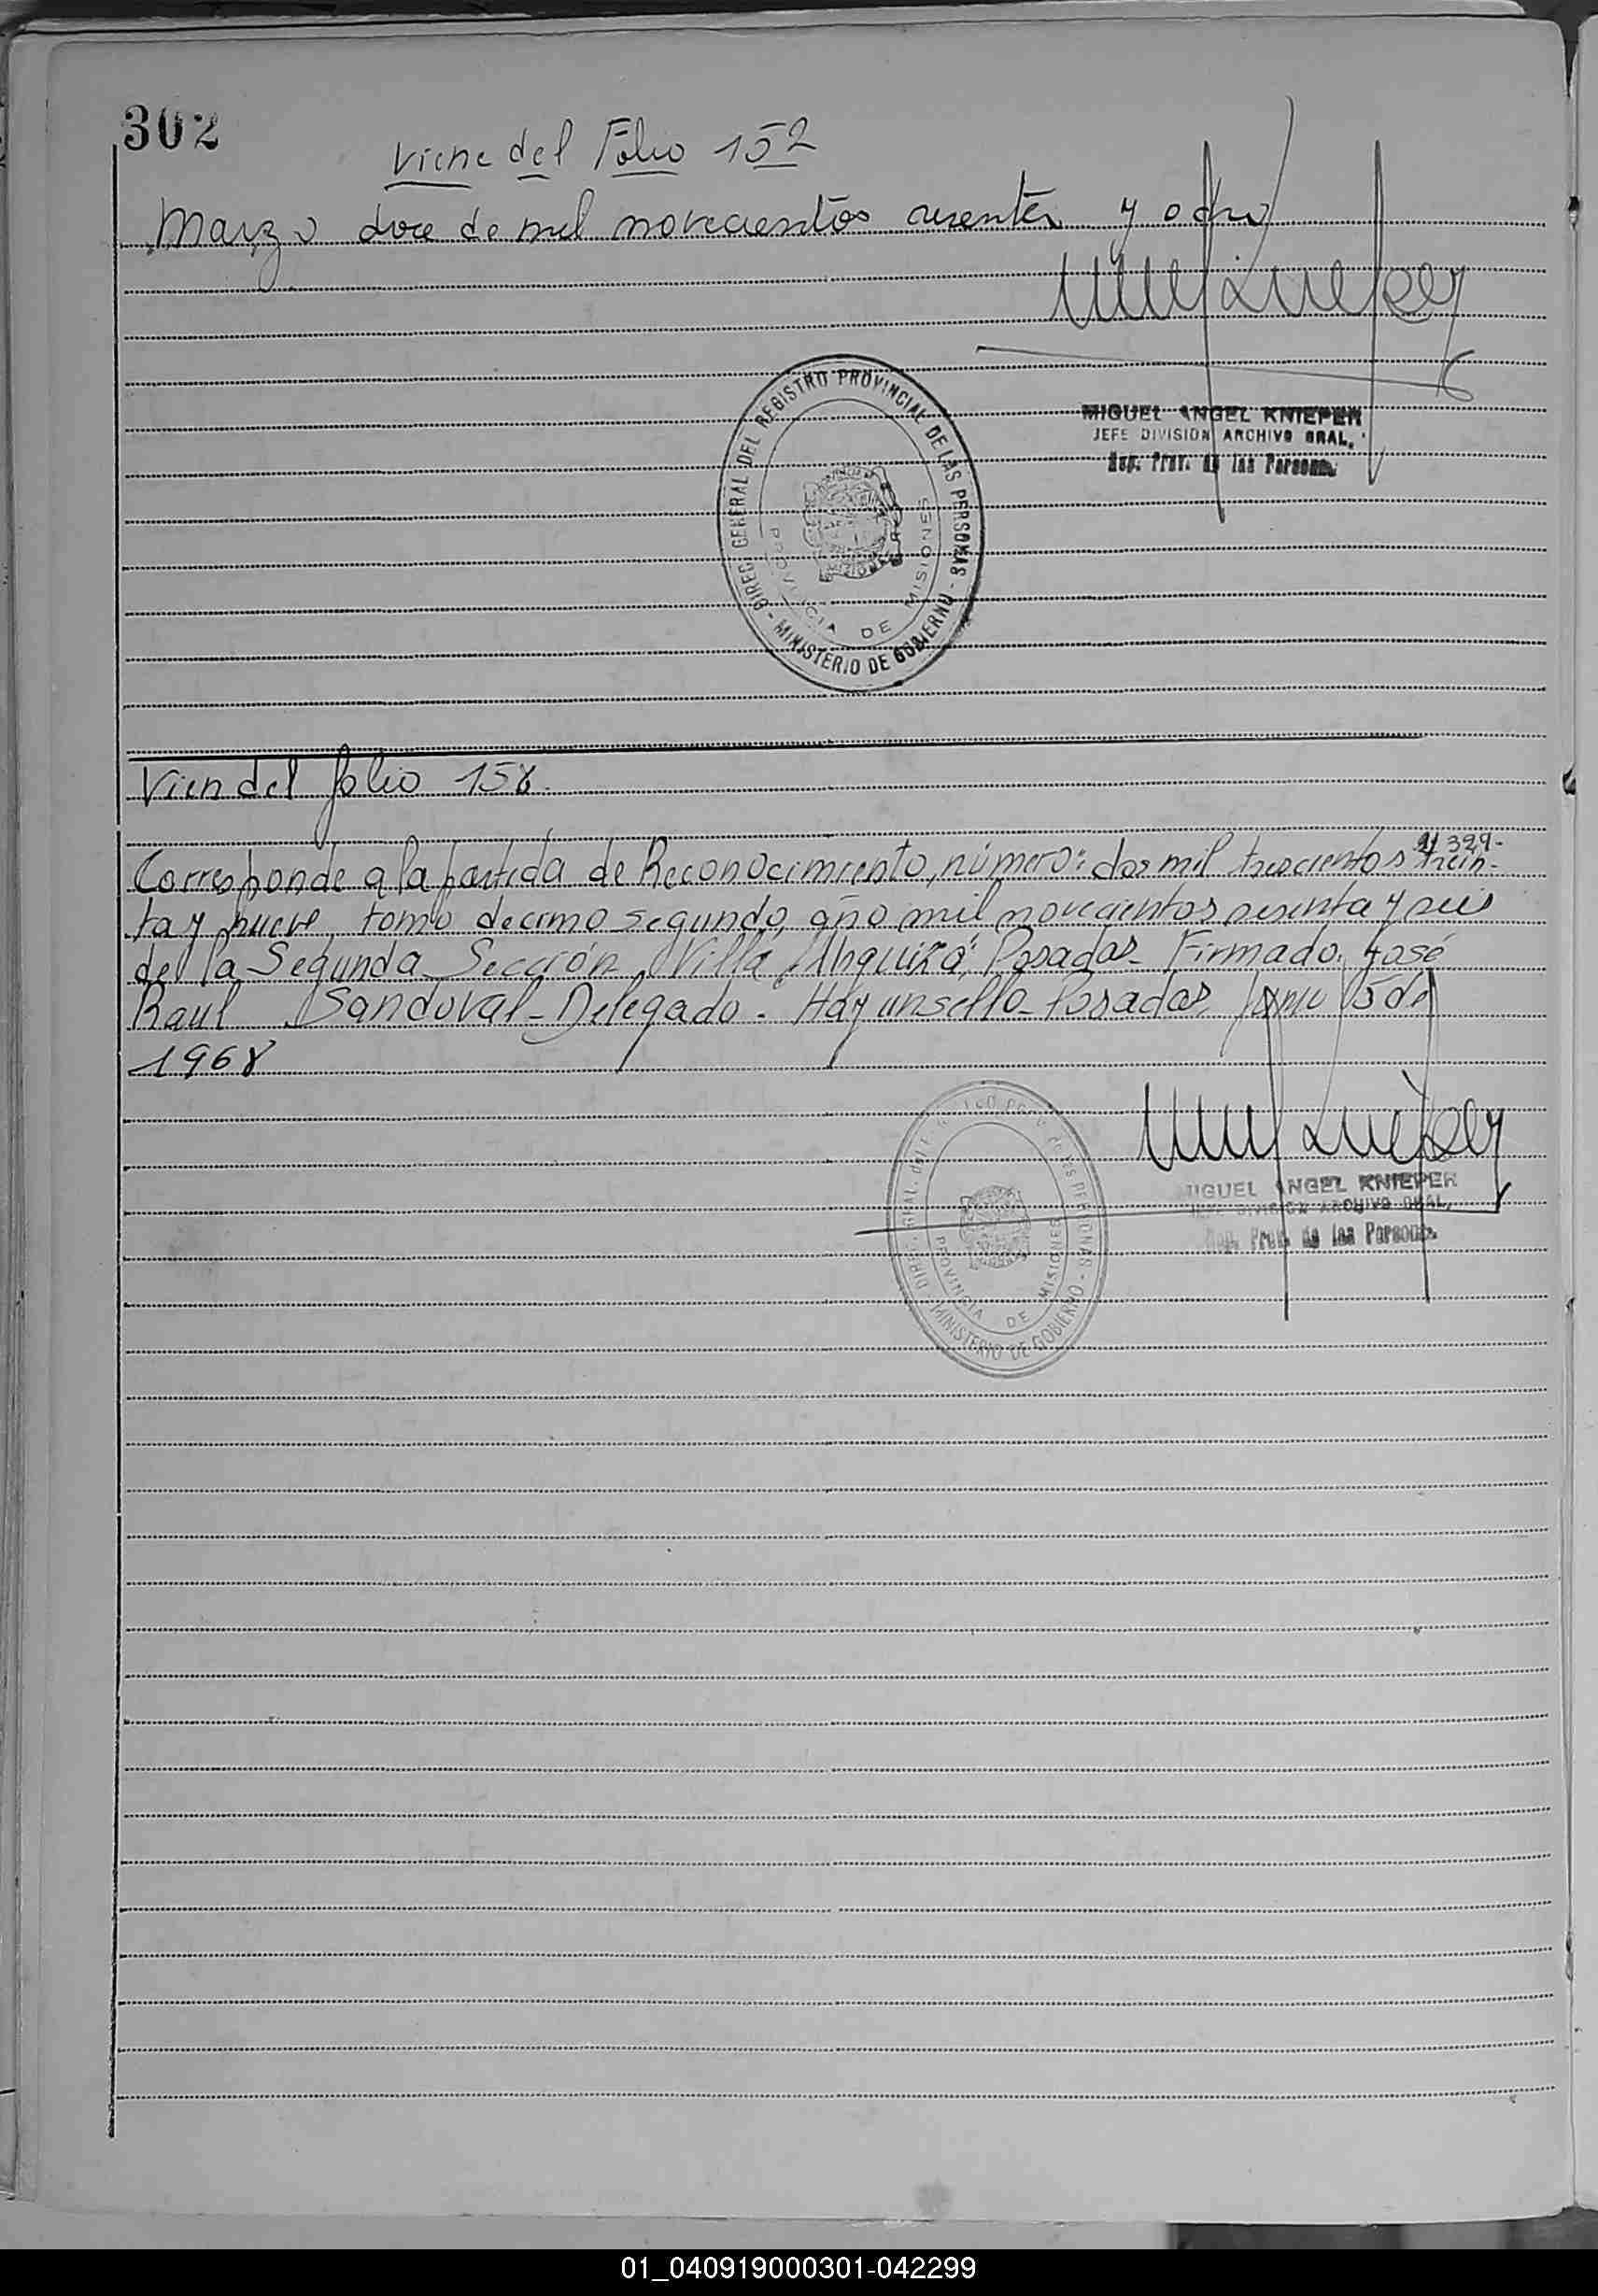 302
Viene del Folio 152
Marzo doce de mil novecientos sesenta y ocho
DIREC. GENERAL DEL REGISTRO PROVINCIAL DE LAS PERSONAS - MINISTERIO DE GOBIERNO -
PROVINCIA DE MISIONES
MIGUEL ANGEL KNIEPER
JEFE DIVISION ARCHIVO GRAL.
Rep. Prov. de las Personas
Vien del folio 158.
329-
Corresponde a la partida de Reconocimiento, número: dos mil trescientos trein-
ta y nueve, tomo decimo segundo, año mil novecientos sesenta y seis
de la Segunda Sección Villa Urquiza, Posadas- Firmado. José
Raul Sandoval-Delegado. Hay un sello-Posadas, Junio 5 de
1968
MINISTERIO DE GOBIERNO
PROVINCIA DE MISIONES
MIGUEL ANGEL KNIEPER
JEFE DIVISION ARCHIVO GRAL.
Rep. Prov. de las Persons.
01_040919000301-042299